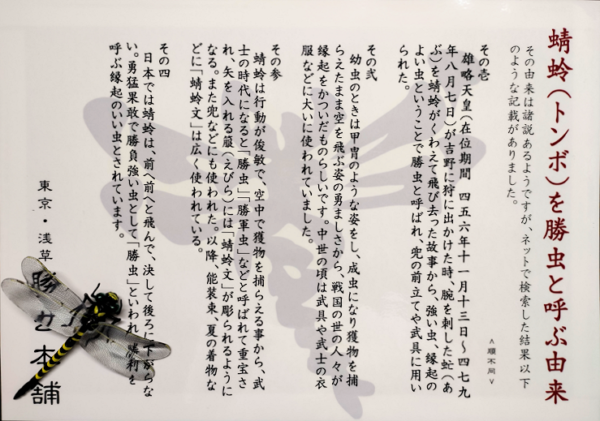 蜻蛉(トンボ)を勝虫と呼ぶ由来
その由来は諸説あるようですが、ネットで検索した結果以下
のような記載がありました。
<順不同>
その壱
雄略天皇(在位期間 四五六年十一月十三日~四七九
年八月七日)が吉野に狩に出かけた時、腕を刺した虻(あ
ぶ)を蜻蛉がくわえて飛び去った故事から、強い虫、縁起の
よい虫ということで勝虫と呼ばれ、兜の前立てや武具に用い
られた。
その弐
幼虫のときは甲冑のような姿をし、成虫になり獲物を捕
らえたまま空を飛ぶ姿の勇ましさから、戦国の世の人々が
縁起をかついだものらしいです。中世の頃は武具や武士の衣
服などに大いに使われていました。
その参
蜻蛉は行動が俊敏で、空中で獲物を捕らえる事から、武
士の時代になると「勝虫」「勝軍虫」などと呼ばれて重宝さ
れ、矢を入れる箙(えびら)には「蜻蛉文」が彫られるように
なる。また兜などにも使われた。以降、能装束、夏の着物な
どに「蜻蛉文」は広く使われている。
その四
日本では蜻蛉は、前へ前へと飛んで、決して後ろに下がらな
い。勇猛果敢で勝負強い虫として「勝虫」といわれ、勝利を
呼ぶ縁起のいい虫とされています。
東京・浅草
勝虫本舗